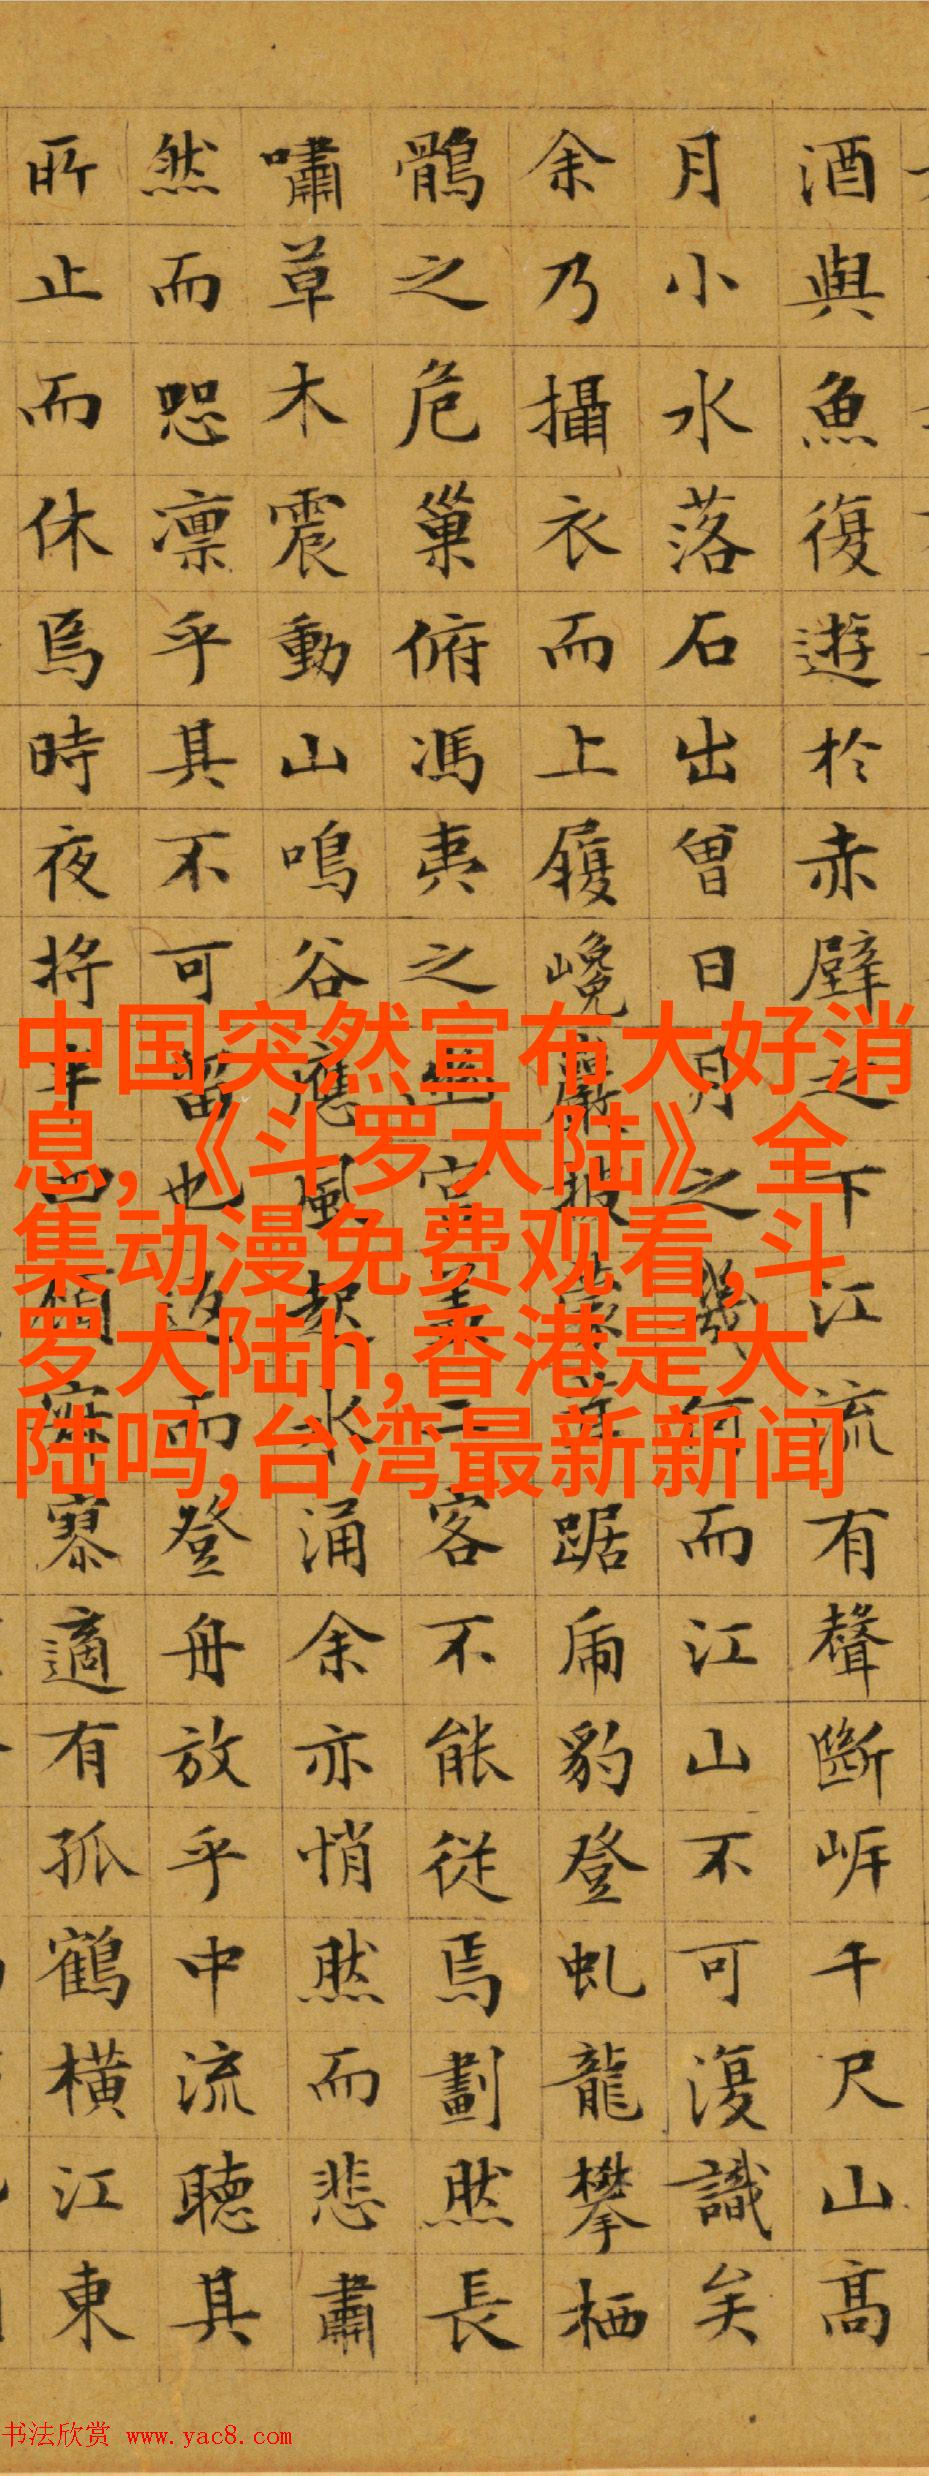 酒與魚復遊於赤壁之下江流有聲斷岸千尺山高
月小水落石出曾日月之幾何而江山不可復識矣
余乃攝衣而上履巉巖披蒙茸踞虎豹登虬龍攀栖
鶻之危巢俯馮夷之幽宮蓋二客不能從焉劃然長
嘯草木震動山鳴谷應風起水涌余亦悄然而悲肅
然而恐凛乎其不可留也返而登舟放乎中流聽其
所止而休焉時夜將半四顧寂寥適有孤鶴橫江東
中国突然宣布大好消
息,《斗罗大陆》全
集动漫免费观看,斗
罗大陆h,香港是大
陆吗,台湾最新新闻
书法欣赏 www.yac8.com